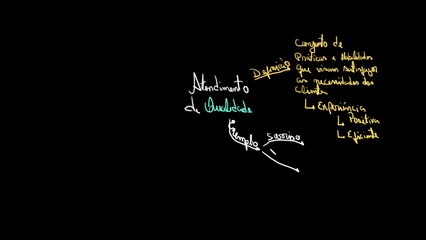 Atendimento
de Qualidade
Definição
Conjunto de
Práticas e Habilidades
que visam satisfazer
as necessidades dos
clientes
Experiência
Positiva
Eficiente
Exemplo
Sorriso